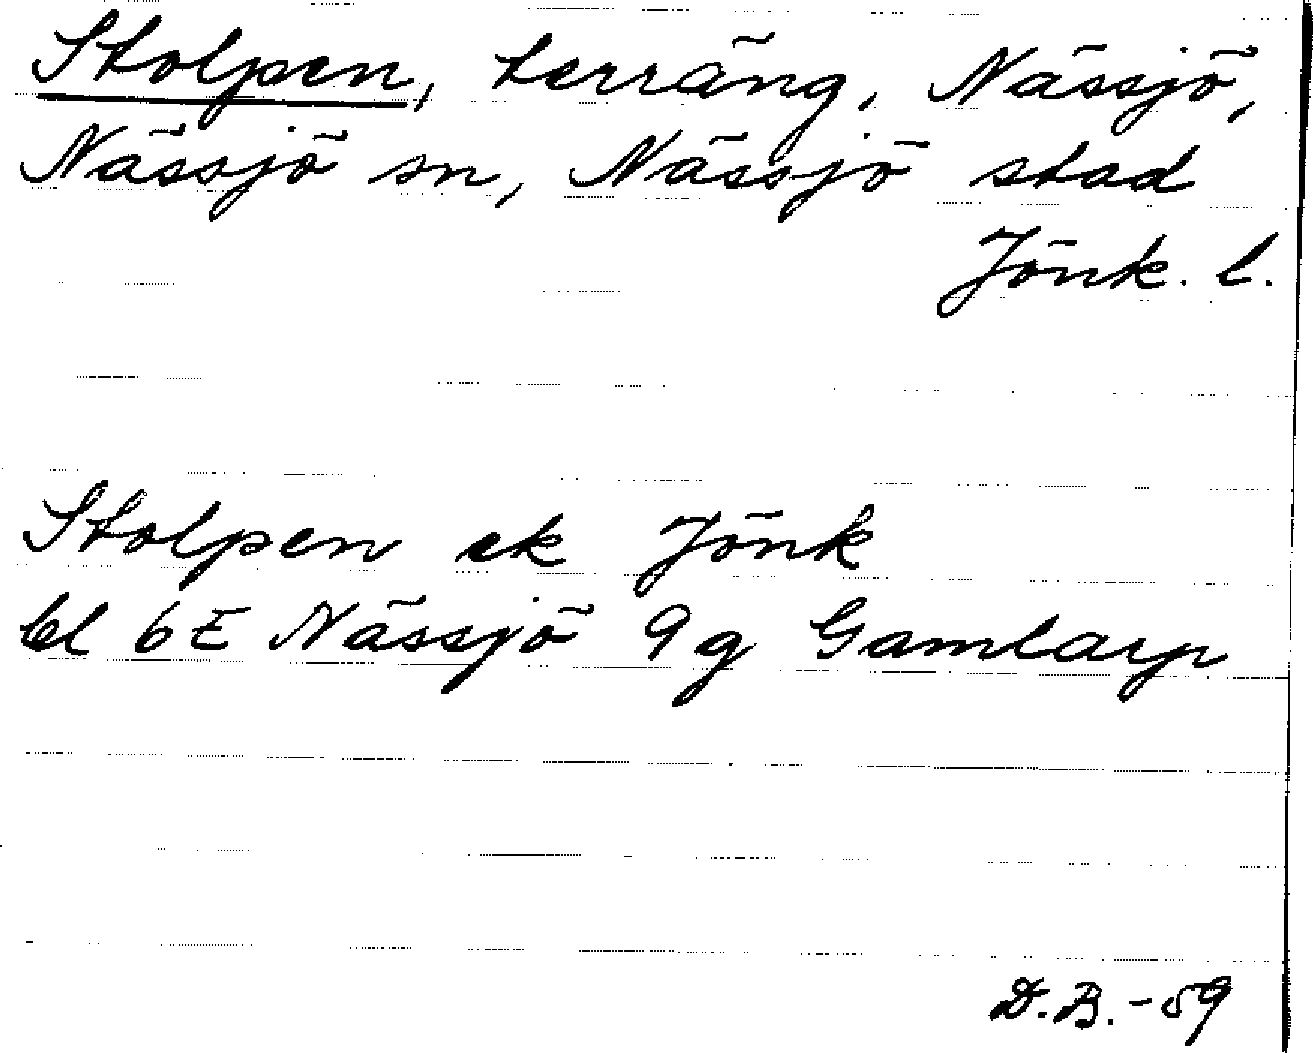 Stolpen, terräng, Nässjö,
Nässjö sn, Nässjö stad
Jönk. l.
Stolpen ek Jönk
bl 6E Nässjö 9g Gamlarp
D.B. -59